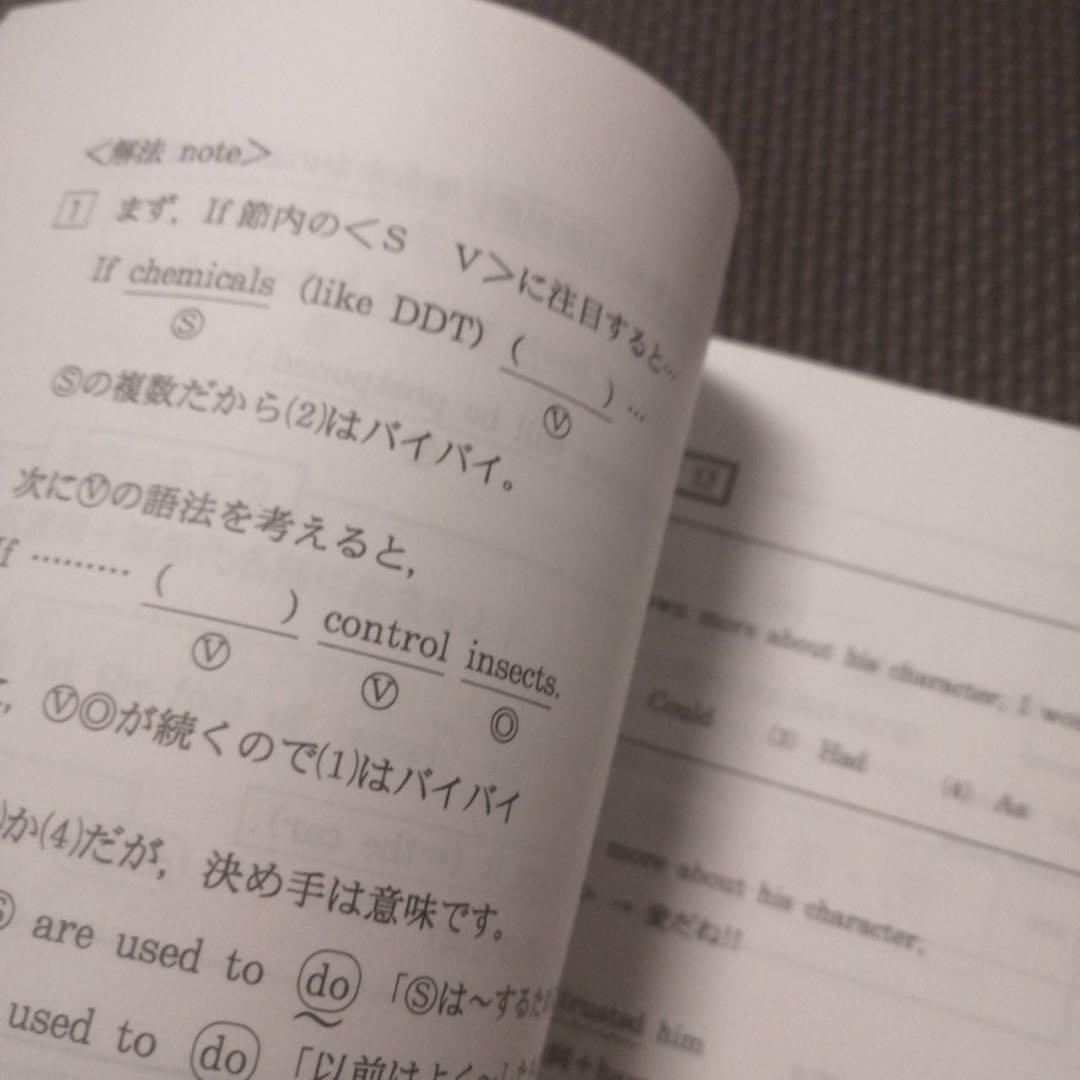 <解法 note>
1 まず，If 節内の<S V>に注目すると…
If chemicals (like DDT) ( ) …
Ⓢ Ⓥ
Ⓢの複数だから(2)はバイバイ。
次にⓋの語法を考えると，
If ……… ( ) control insects.
Ⓥ Ⓥ Ⓞ
，ⓋⓄが続くので(1)はバイバイ
)か(4)だが，決め手は意味です。
Ⓢ are used to do 「Ⓢは～するた
used to do 「以前はよく～した
17
more about his character, I wo
Could (3) Had (4) As
more about his character,
→ 変だね!!
trusted him